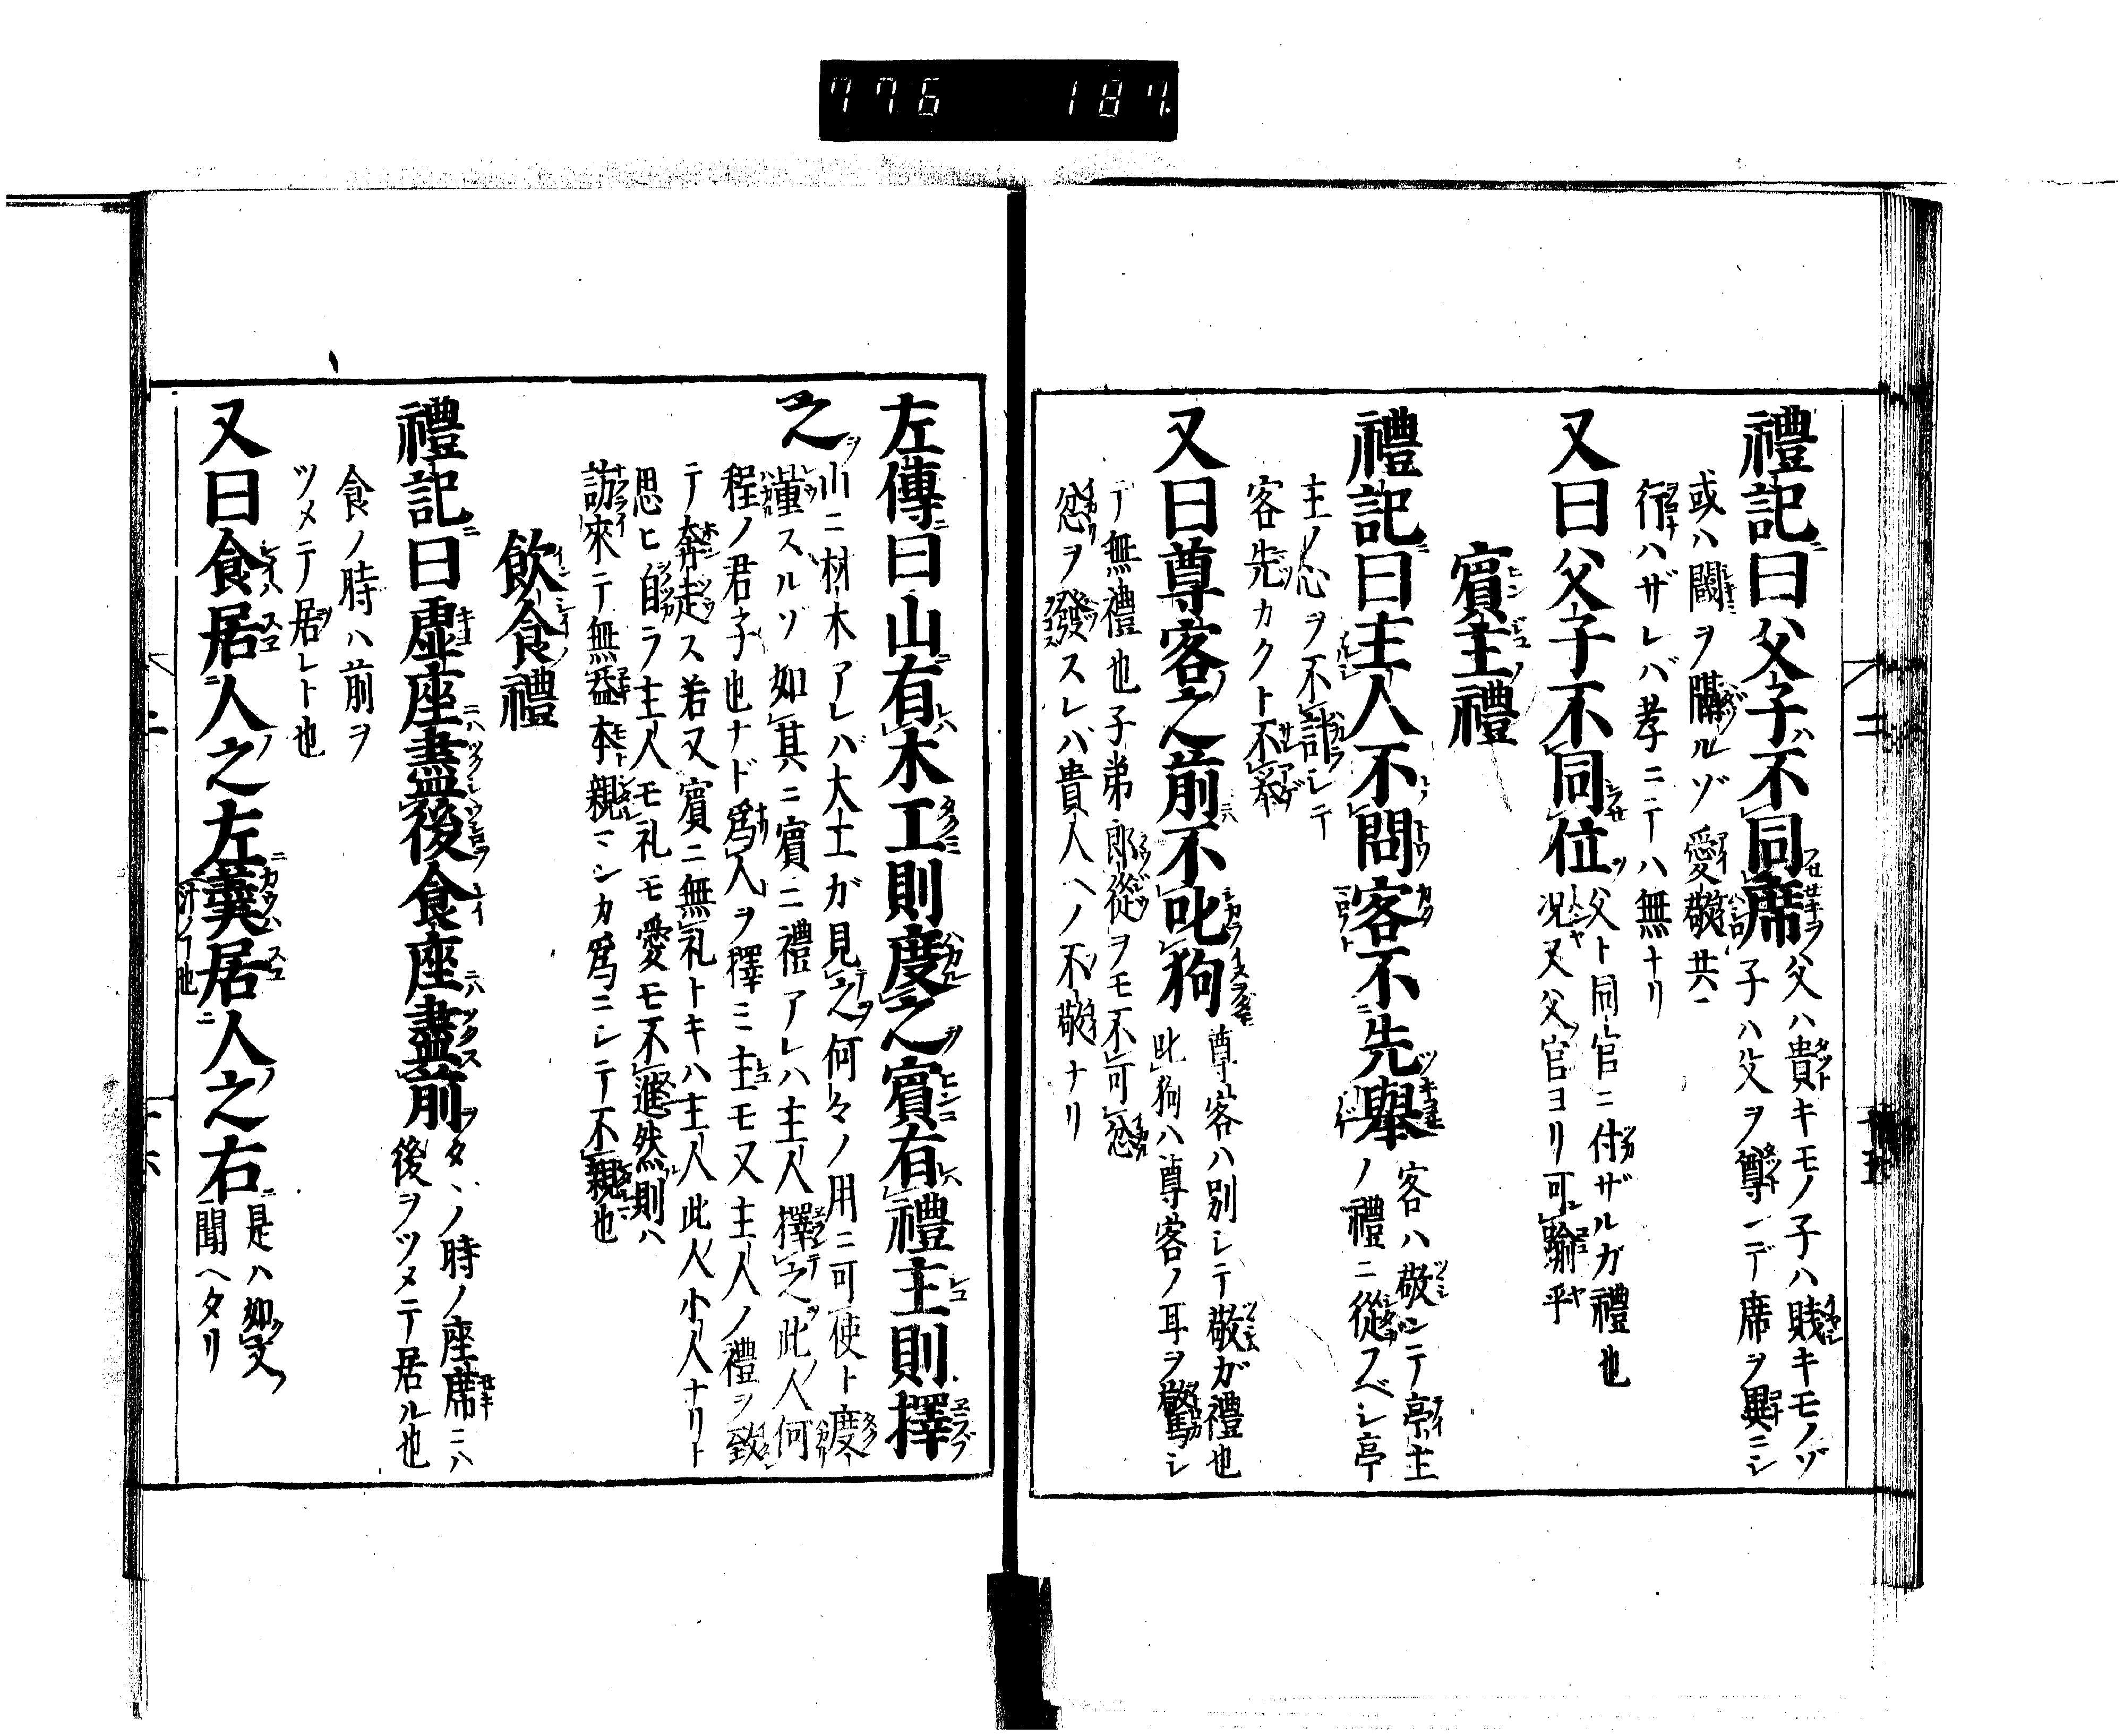 776 187
禮記曰父子不同席父ハ貴キモノ子ハ賎キモノゾ
子ハ父ヲ尊ンデ席ヲ異ニシ
或ハ閾ヲ隔ルゾ愛敬共ニ
行ハザレバ孝ニテハ無ナリ
又曰父子不同位父ト同官ニ付ザルガ禮也
况又父官ヨリ可踰乎
賓主禮
禮記曰主人不問客不先擧客ハ敬シテ亭主
ノ禮ニ從フベシ亭
主ノ心ヲ不計シテ
客先カクト不擧
又曰尊客之前不叱狗尊客ハ別シテ敬ガ禮也
叱狗ハ尊客ノ耳ヲ驚シ
テ無禮也子弟郎從ヲモ不可忿
忿ヲ發スレバ貴人ヘノ不敬ナリ
左傳曰山有木工則度之賓有禮主則擇
之山ニ材木アレバ大工ガ見之何々ノ用ニ可使ト度
量スルゾ如其ニ賓ニ禮アレハ主人擇之此人何
程ノ君子也ナド爲人ヲ擇ミ主モ又主人ノ禮ヲ致
テ奔走ス若又賓ニ無礼トキハ主人此人小人ナリト
思ヒ自ラ主人モ礼モ愛モ不進然則ハ
訪來テ無益本親ミシカ爲ニシテ不親也
飲食禮
禮記曰虚座盡後食座盡前タヽノ時ノ座席ニハ
後ヲツメテ居ル也
食ノ時ハ前ヲ
ツメテ居レト也
又曰食居人之左羹居人之右是ハ如文
聞ヘタリ